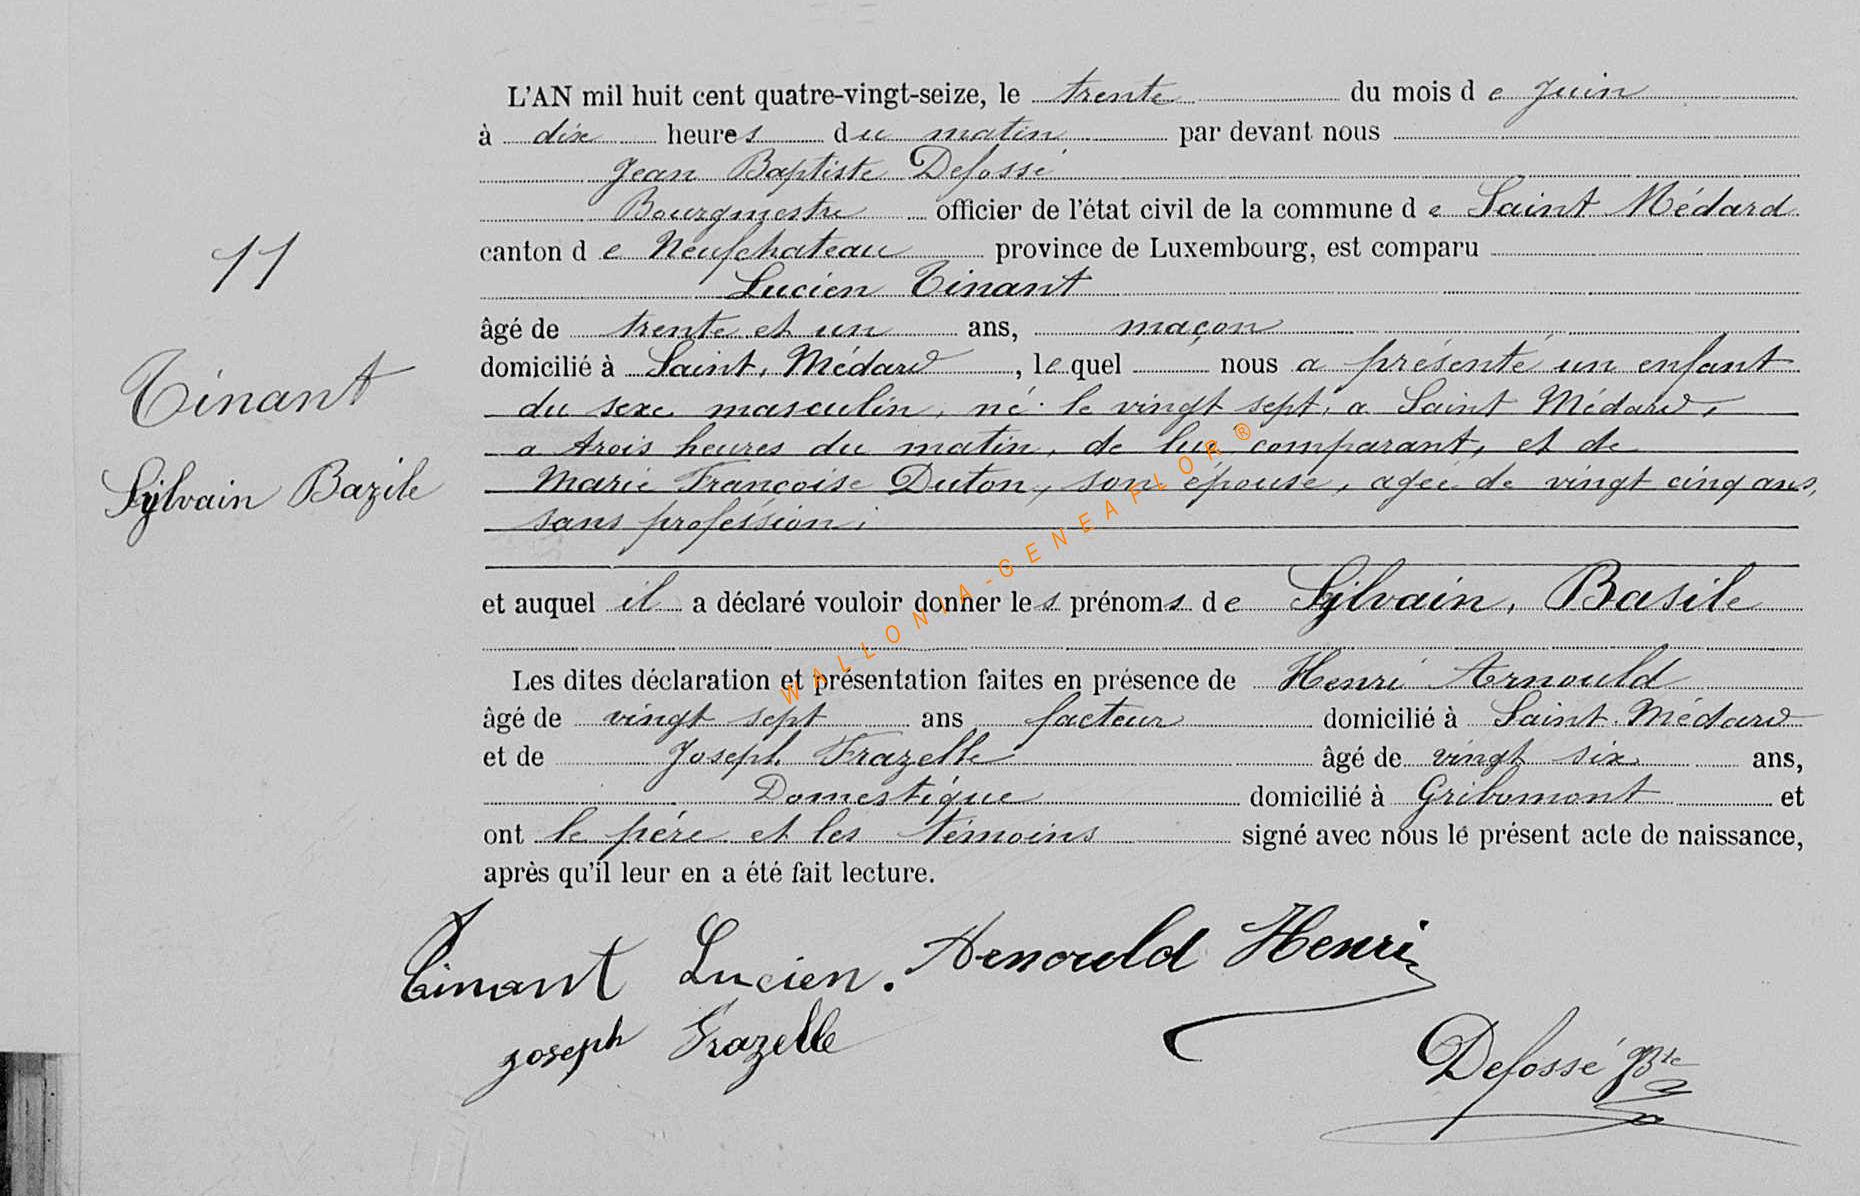 L'AN mil huit cent quatre-vingt-seize, le trente du mois de Juin
à dix heures du matin par devant nous
Jean Baptiste Defossé
Bourgmestre officier de l'état civil de la commune de Saint Médard
canton de Neufchateau province de Luxembourg, est comparu
Lucien Tinant
âgé de trente et un ans, maçon
domicilié à Saint, Médard, lequel nous a présenté un enfant
du sexe masculin, né le vingt sept, a Saint Médard,
a trois heures du matin, de lui comparant, et de
Marie Françoise Duton, son épouse, agée de vingt cinq ans,
sans profession;
et auquel il a déclaré vouloir donner les prénoms de Sylvain, Basile
Les dites déclaration et présentation faites en présence de Henri Arnould
âgé de vingt sept ans facteur domicilié à Saint Médard
et de Joseph Frazelle âgé de vingt six ans,
Domestique domicilié à Gribomont et
ont le père et les témoins signé avec nous le présent acte de naissance,
après qu'il leur en a été fait lecture.
11
Tinant
Sylvain Bazile
Tinant Lucien. Arnould Henri
joseph Frazelle
Defossé JBte
WALLONIA-GENEAFLOR ®